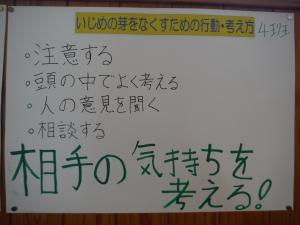 いじめの芽をなくすための行動・考え方 4班
・注意する
・頭の中でよく考える
・人の意見を聞く
・相談する
相手の気持ちを
考える!